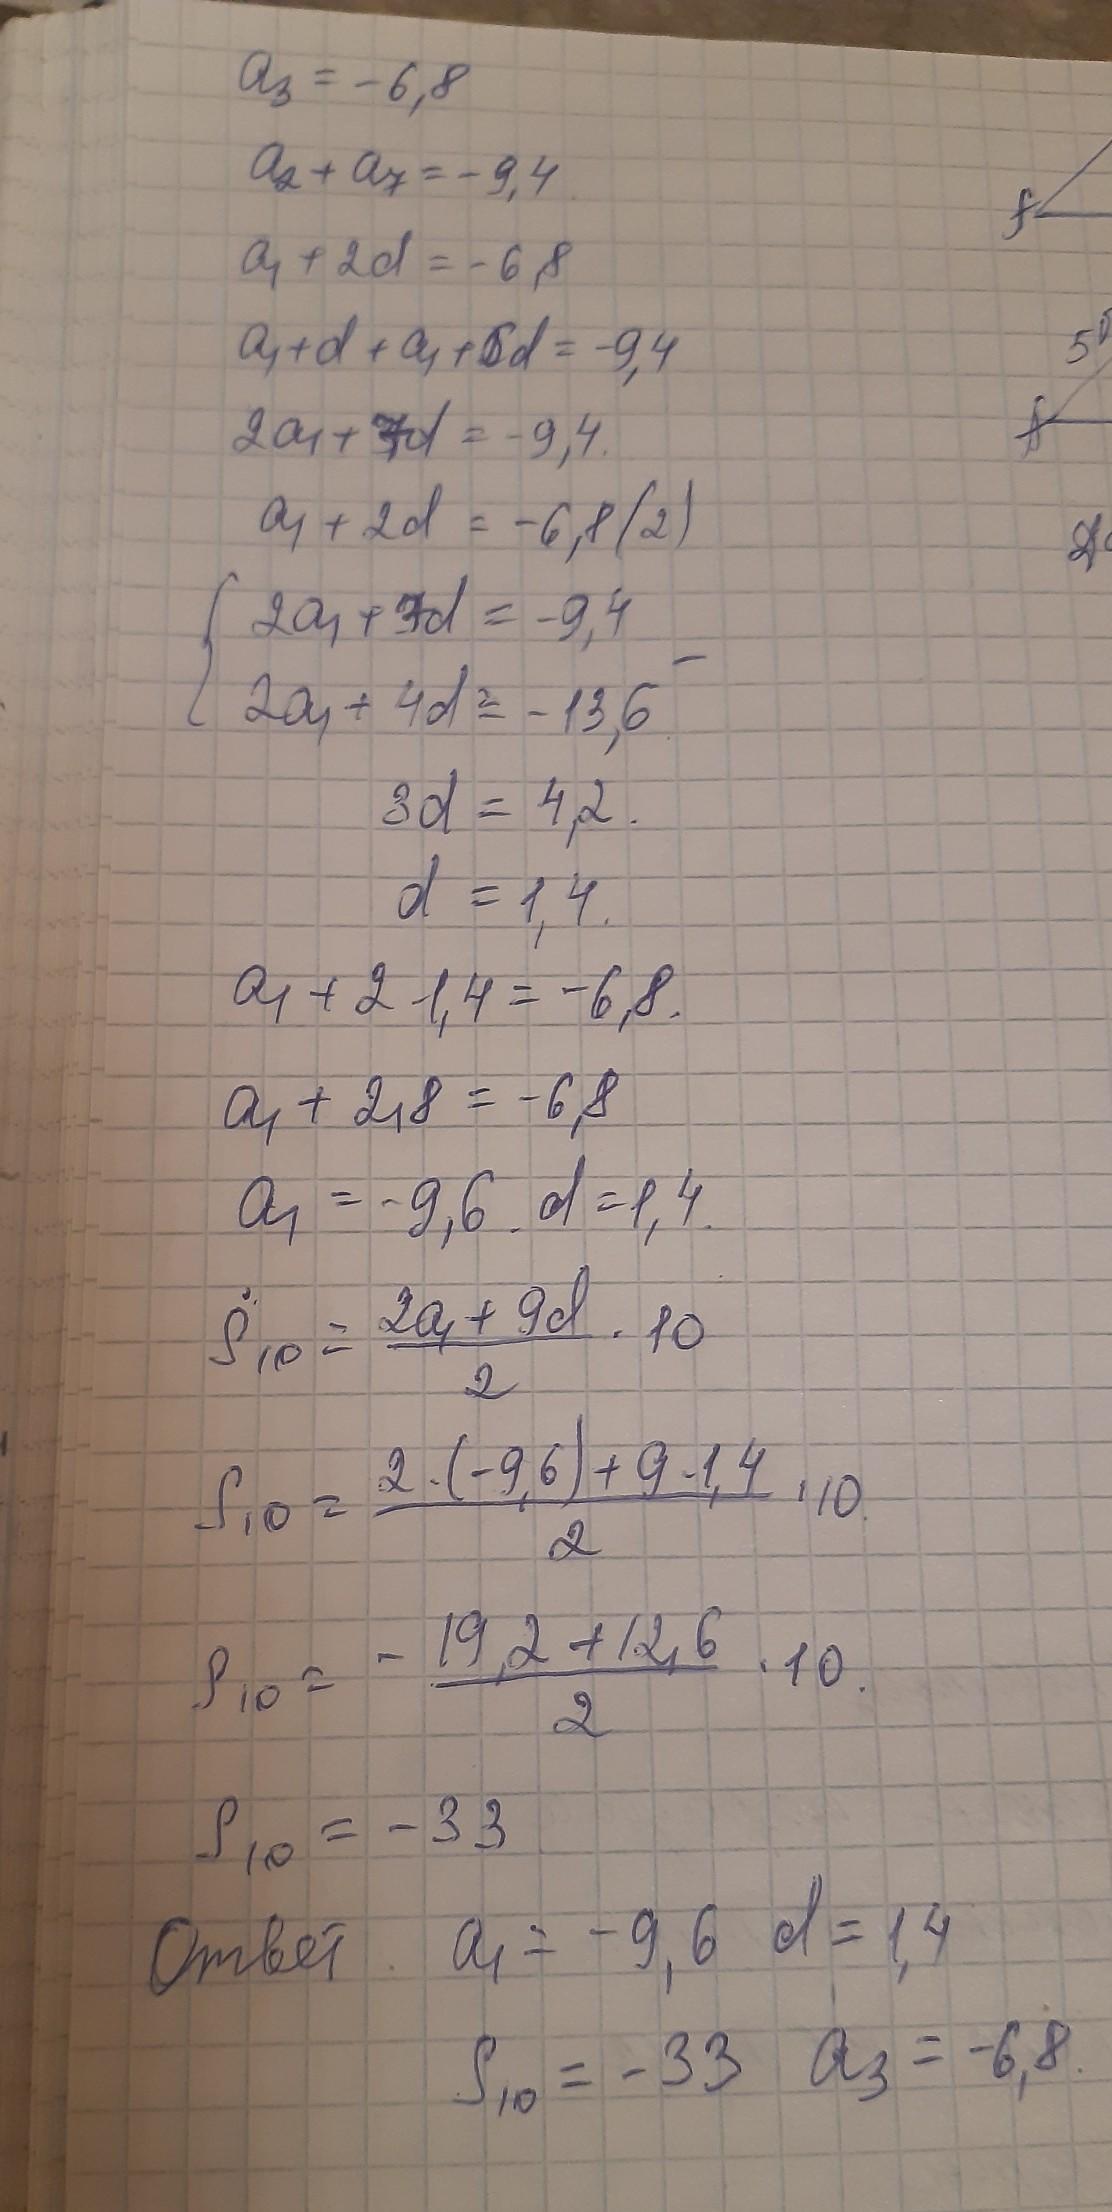 a₃ = -6,8
a₂ + a₇ = -9,4
a₁ + 2d = -6,8
a₁ + d + a₁ + 6d = -9,4
2a₁ + 7d = -9,4.
a₁ + 2d = -6,8 (2)
{ 2a₁ + 7d = -9,4
2a₁ + 4d = -13,6 -
3d = 4,2.
d = 1,4.
a₁ + 2·1,4 = -6,8.
a₁ + 2,8 = -6,8
a₁ = -9,6. d = 1,4.
S₁₀ = (2a₁ + 9d)/2 · 10
S₁₀ = (2·(-9,6) + 9·1,4)/2 · 10.
S₁₀ = - (19,2 + 12,6)/2 · 10.
S₁₀ = -33
Ответ. a₁ = -9,6 d = 1,4
S₁₀ = -33 a₃ = -6,8.